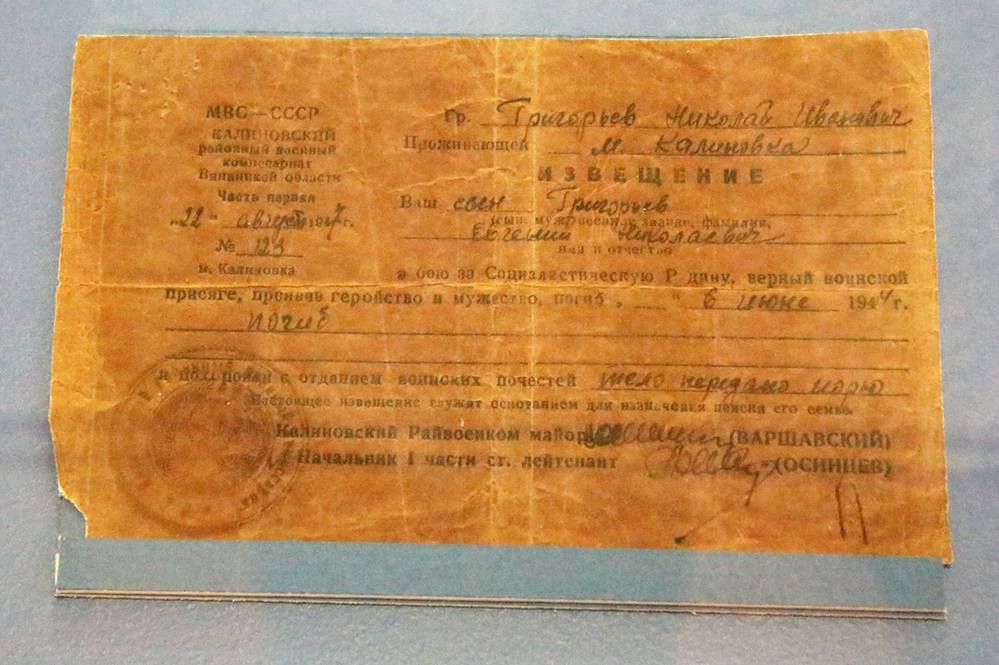 МВС — СССР
КАЛИНОВСКИЙ
районный военный
комиссариат
Винницкой области
Часть первая
„22“ август 1947 г.
№ 123
м. Калиновка
Гр. Григорьев Николай Иванович
Проживающей м. Калиновка
ИЗВЕЩЕНИЕ
Ваш сын Григорьев
(сын, муж, военное звание, фамилия,
Евгений Николаевич
имя и отчество
в бою за Социалистическую Р дину, верный воинской
присяге, проявив геройство и мужество, погиб „ “ 6 июня 1944 г.
погиб
и похоронен с отданием воинских почестей тело передано морю
Настоящее извещение служит основанием для назначения пенсии его семье.
Калиновский Райвоенком майор (ВАРШАВСКИЙ)
Начальник I части ст. лейтенант (ОСИНЦЕВ)